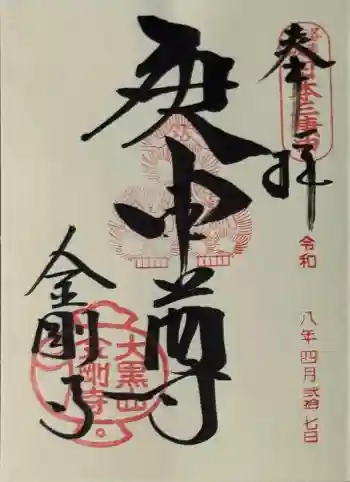 奉拝
日本三庚申
令和 八年四月弐拾七日
庚申尊
金剛寺
大黒山
金剛寺